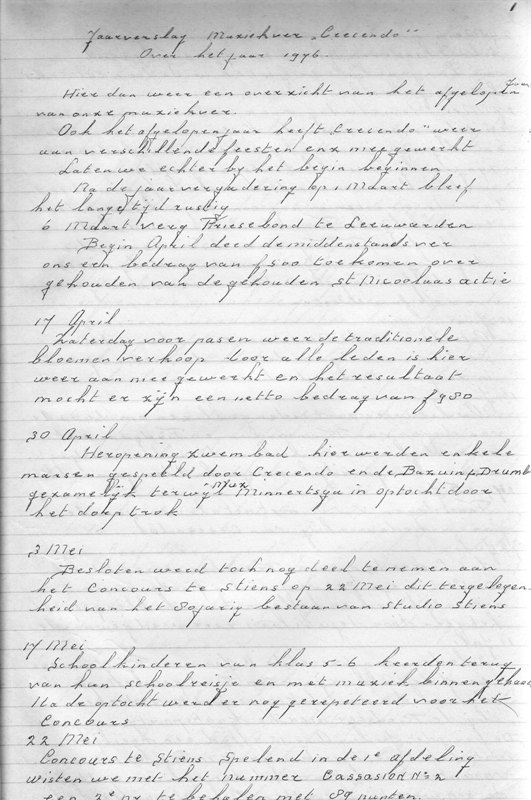 1
Jaarverslag Muziekver "Crecendo"
Over het jaar 1976.
Hier dan weer een overzicht van het afgelopen jaar
van onze muziekver.
Ook het afgelopen jaar heeft "Crecendo" weer
aan verschillende feesten enz mee gewerkt
Laten we echter by het begin beginnen
Na de jaarvergadering op 1 Maart bleef
het lange tijd rustig
6 Maart verg Friesebond te Leeuwarden
Begin April deed de middenstandsver
ons een bedrag van f 500 toekomen over
gehouden van de gehouden st Nicolaas actie
17 April
Zaterdag voor pasen weer de traditionele
bloemen verkoop door alle leden is hier
weer aan mee gewerkt en het resultaat
mocht er zijn een netto bedrag van f 980
30 April
Heropening zwembad hier werden enkele
marsen gespeeld door Crecendo en de Bazuin & Drumb
gezamelijk terwijl Minnertsga in optocht door
het dorp trok
3 Mei
Besloten werd toch nog deel te nemen aan
het Concours te Stiens op 22 Mei dit tergelegen
heid van het 80jarig bestaan van Studio Stiens
17 Mei
Schoolkinderen van klas 5-6 keerden terug
van hun schoolreisje en met muziek binnen gehaald
Na de optocht werd er nog gerepeteerd voor het
Concours
22 Mei
Concours te Stiens Spelend in de 1e afdeling
wisten we met het nummer Cassasion No 2
een 2e pr te behalen met 89 punten.